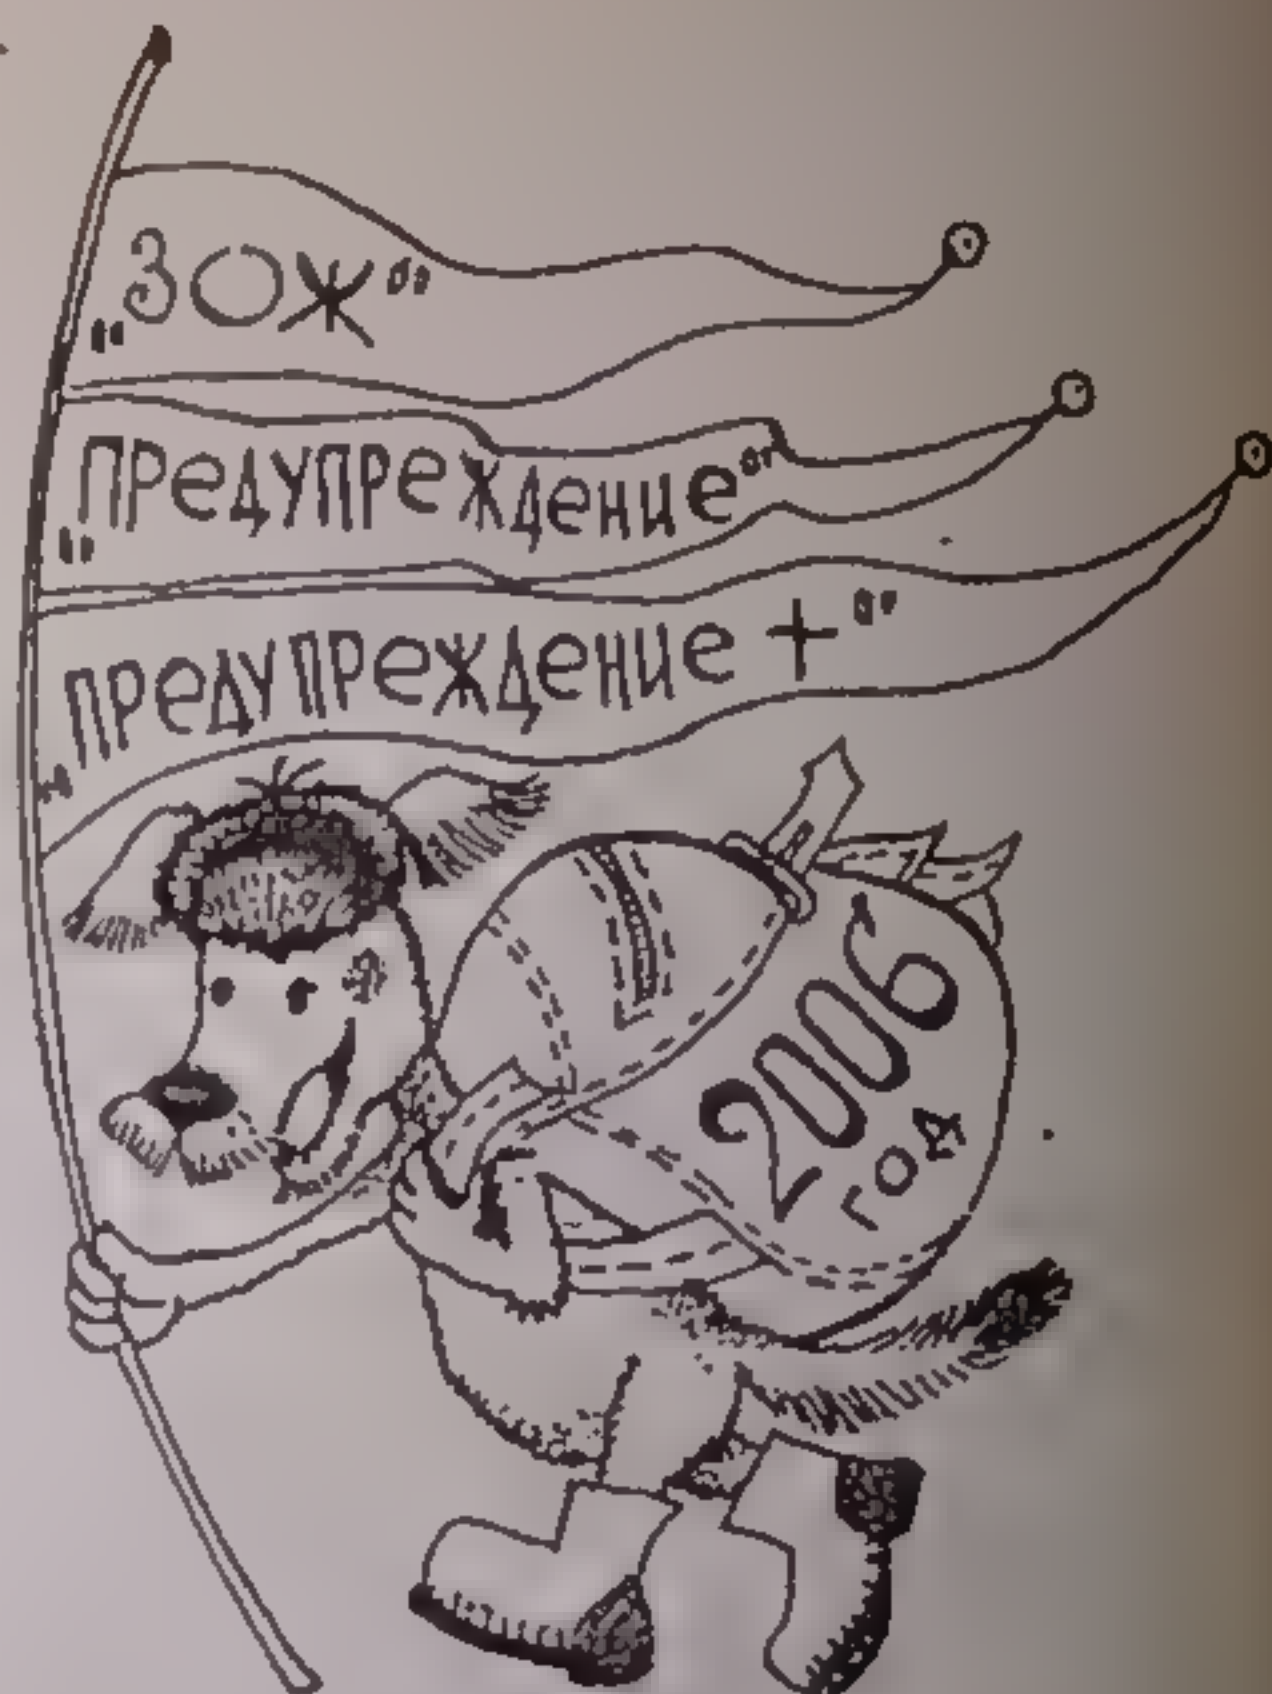 „ЗОЖ“
„ПРеДУПРеждение“
„ПРеДУПРеждение +“
2006
год